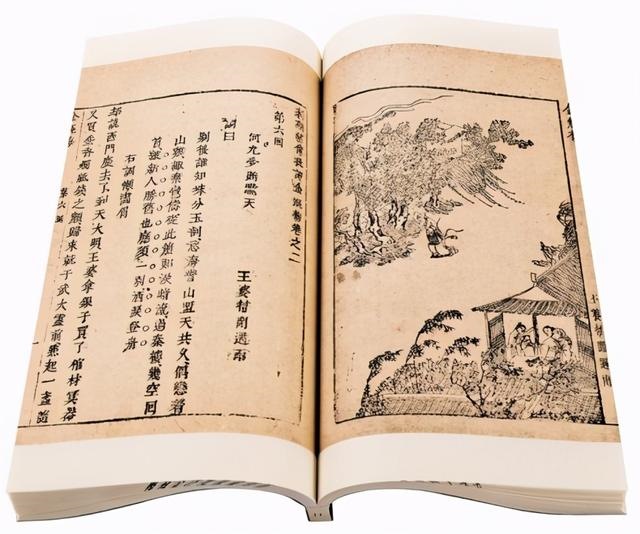 第六回
何九受賄瞞天
王婆幫閒遇雨
詞曰
別後誰知珠分玉剖忘海誓山盟天共久偶戀著
山雞輒棄鸞儔從此簫郎淚暗流過秦樓幾空回
首縱新人勝舊也應須一別洒淚登舟
右調懶畫眉
却說西門慶去了到天大明王婆拿銀子買了棺材冥器
又買些香燭紙錢之類歸來就于武大靈前點起一盞隨
金瓶梅
第六回